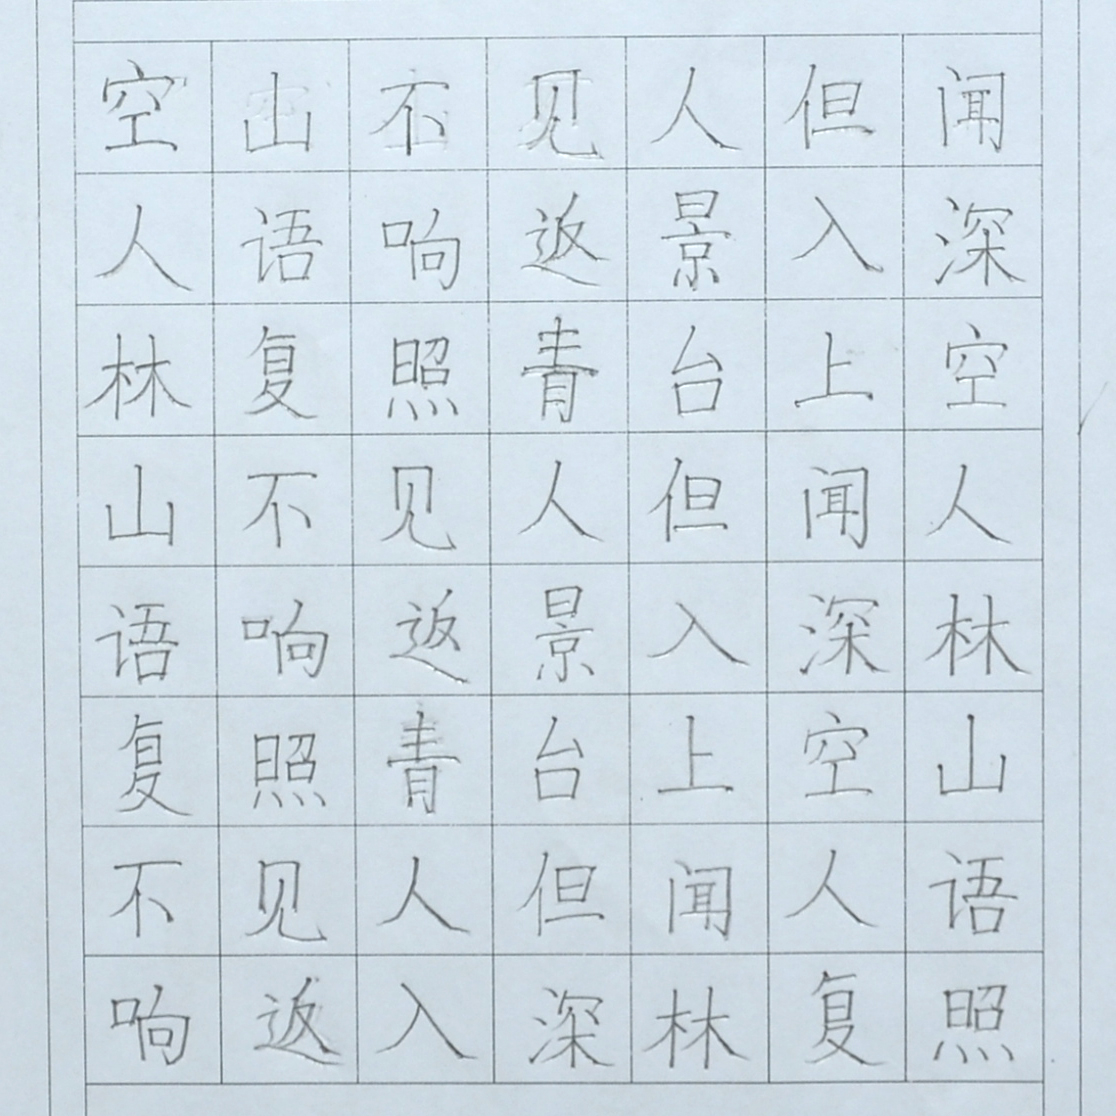 空山不见人但闻
人语响返景入深
林复照青台上空
山不见人但闻人
语响返景入深林
复照青台上空山
不见人但闻人语
响返入深林复照